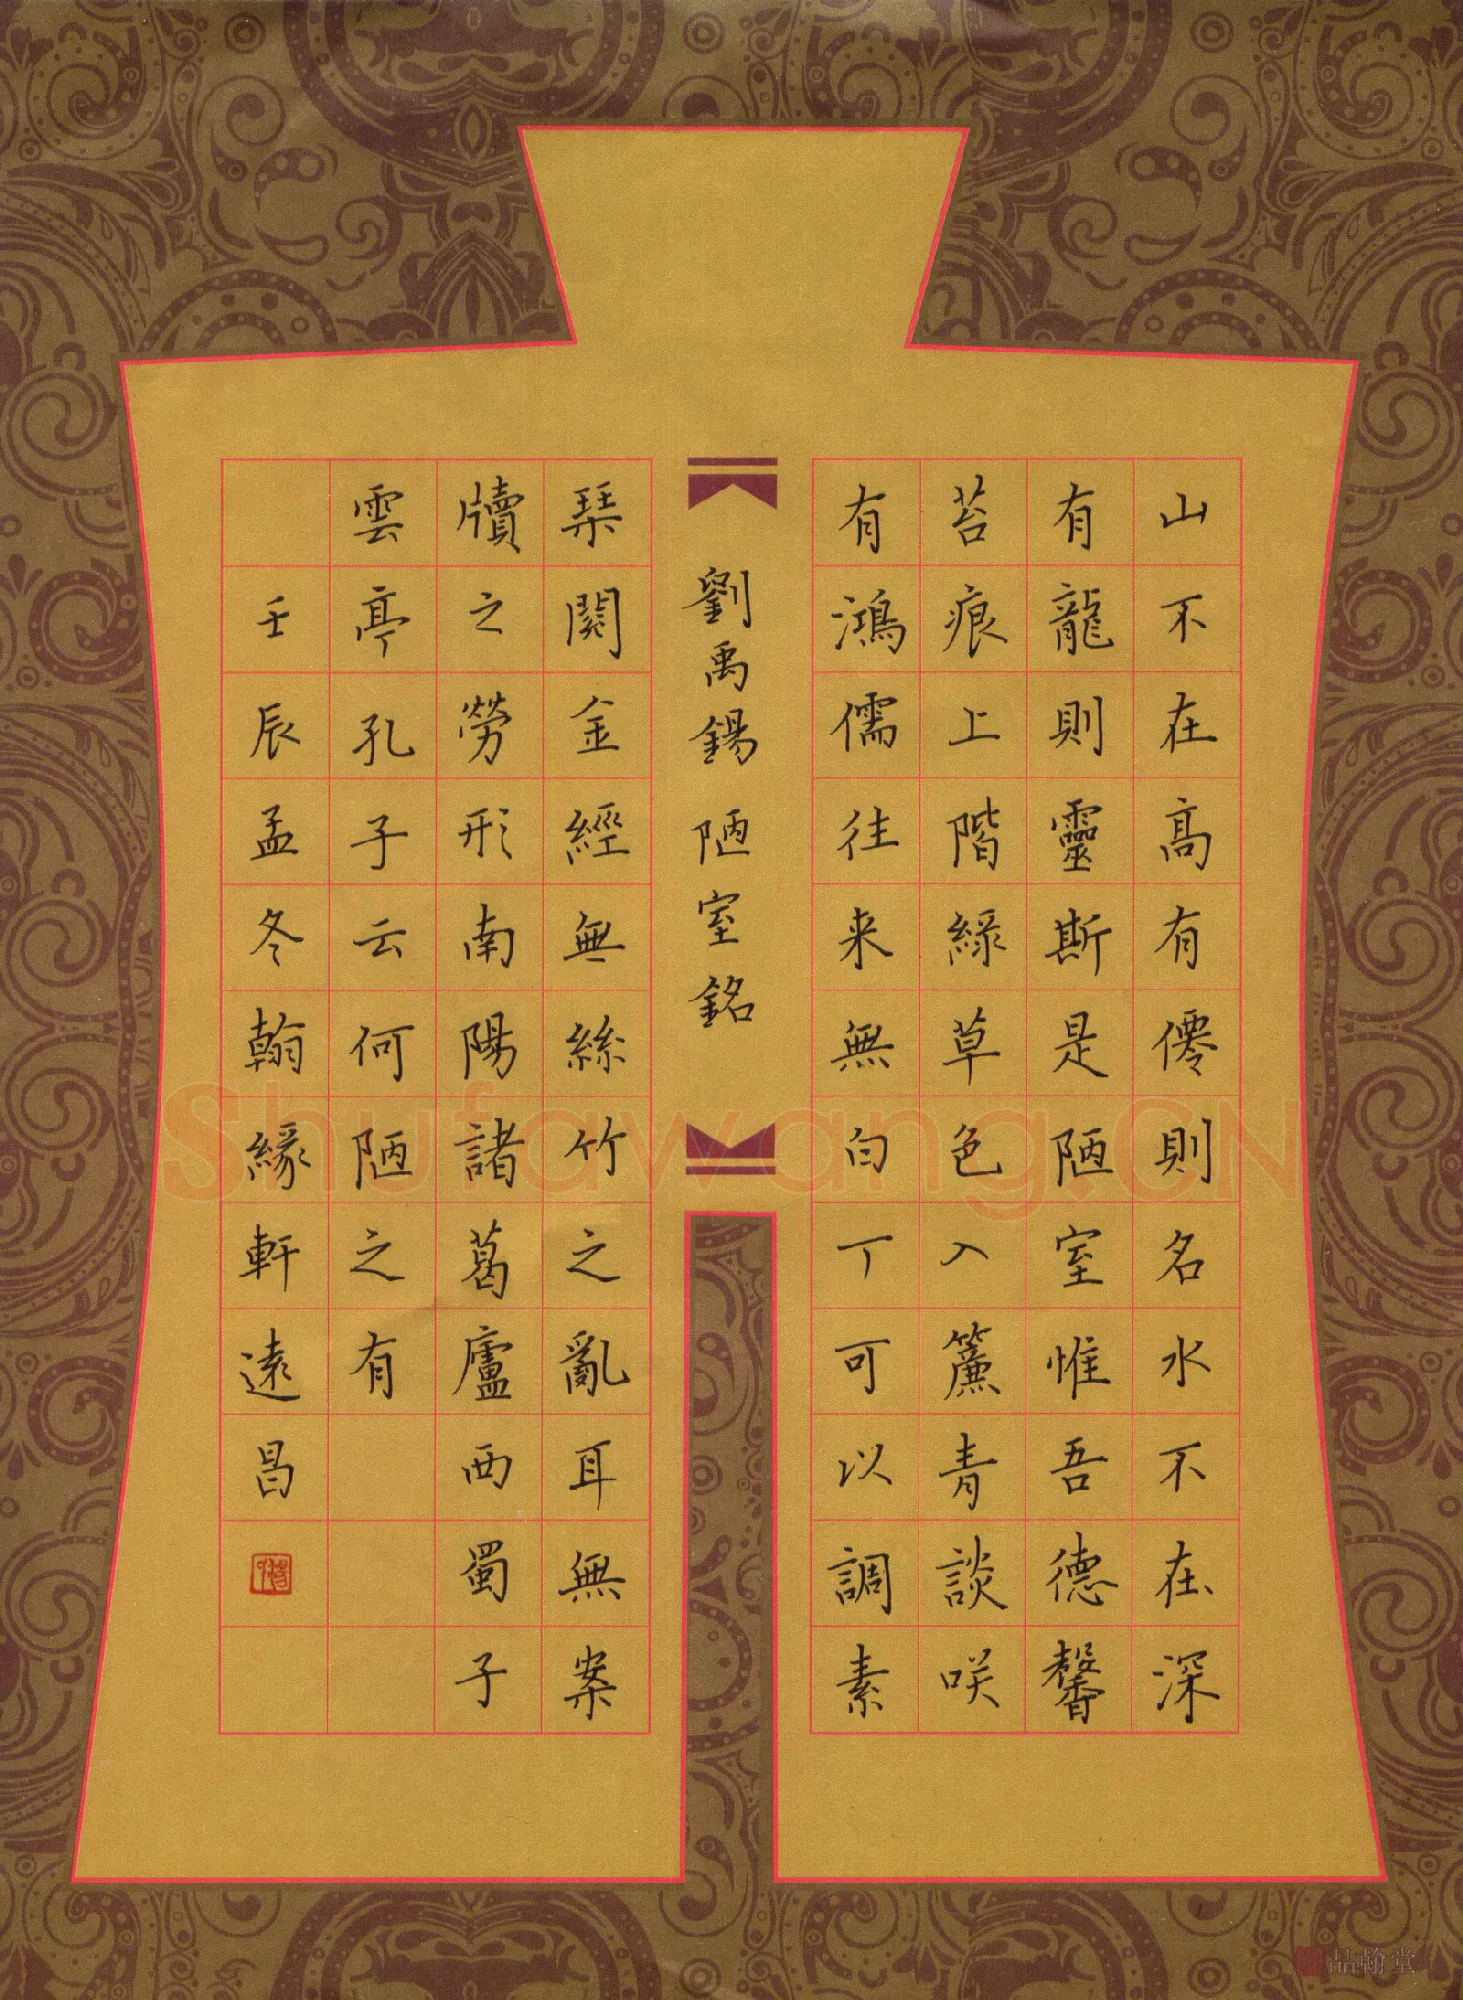 山不在高有僊則名水不在深
有龍則靈斯是陋室惟吾德馨
苔痕上階綠草色入簾青談咲
有鴻儒往来無白丁可以調素
劉禹錫 陋室銘
琹閲金經無絲竹之亂耳無案
牘之勞形南陽諸葛廬西蜀子
雲亭孔子云何陋之有
壬辰孟冬翰緣軒遠昌
Shufawang.CN
品翰堂